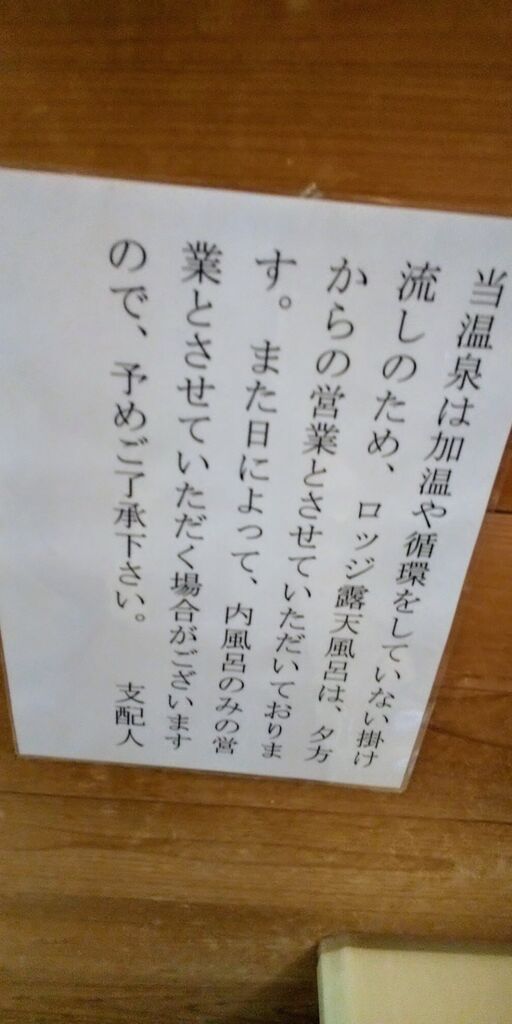 当温泉は加温や循環をしていない掛け
流しのため、ロッジ露天風呂は、夕方
からの営業とさせていただいておりま
す。また日によって、内風呂のみの営
業とさせていただく場合がございます
ので、予めご了承下さい。 支配人